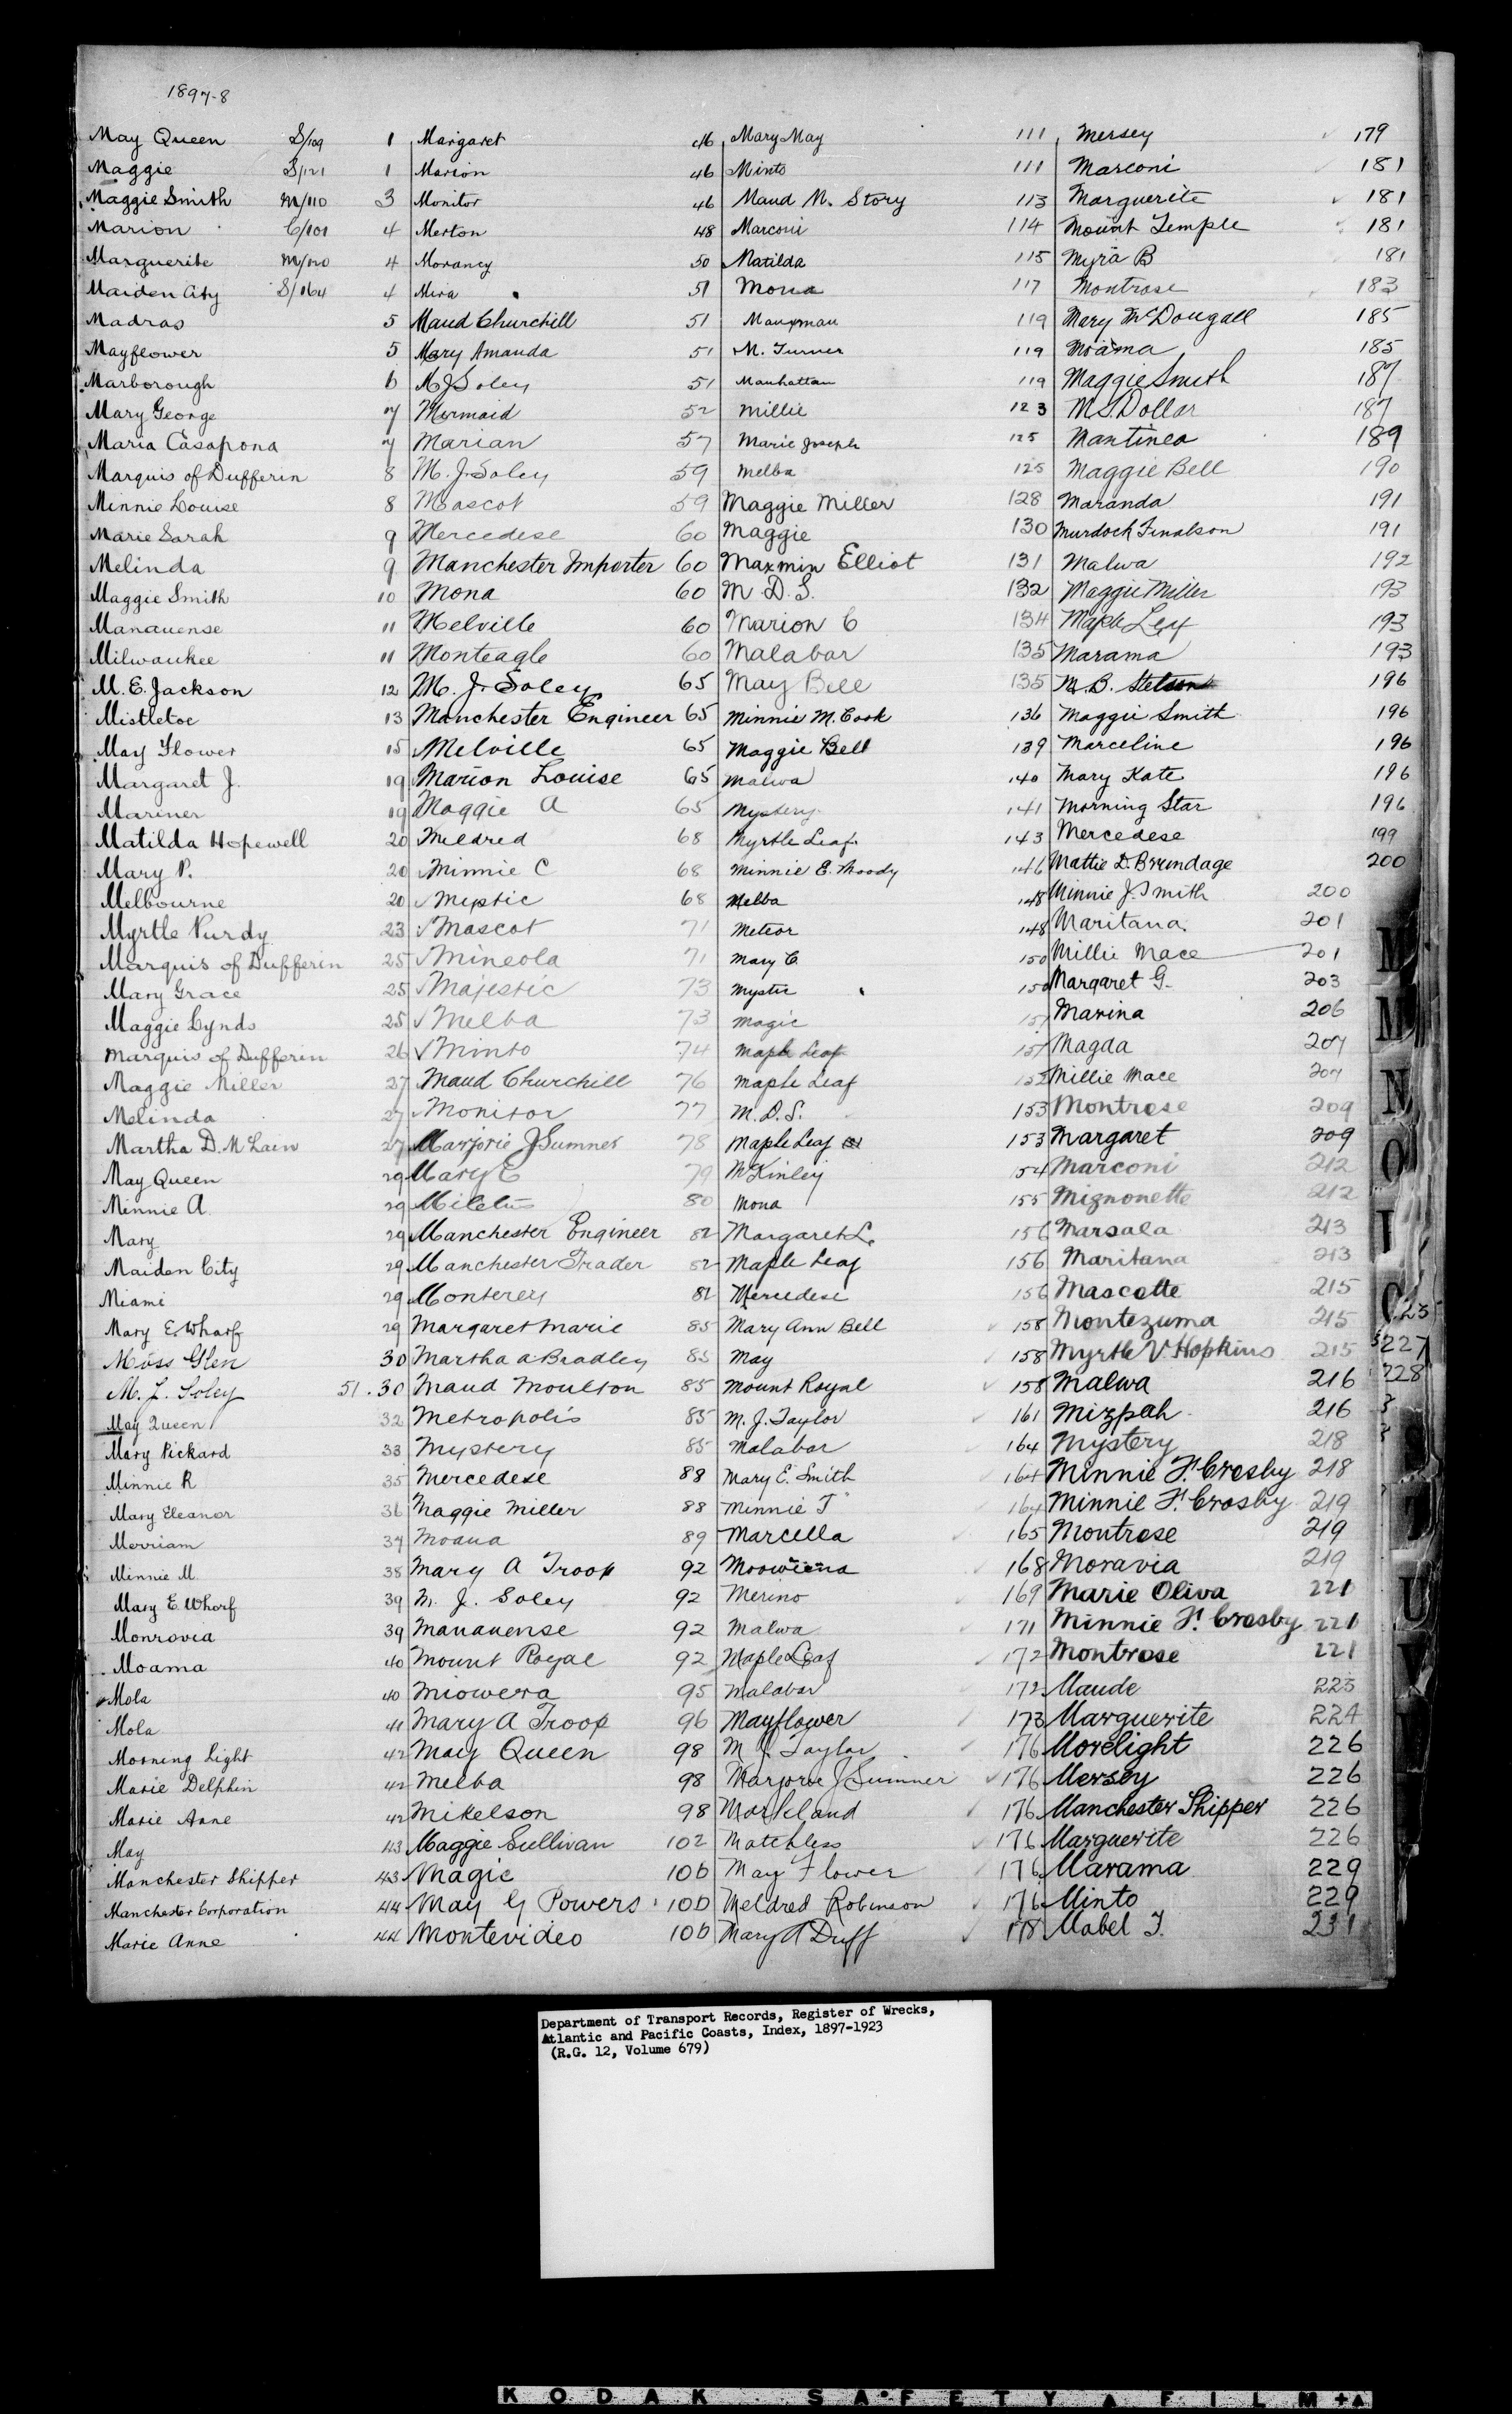 1897-8
May Queen S/109 1
Maggie S/121 1
Maggie Smith M/110 3
Marion C/101 4
Marguerite M/120 4
Maiden City S/164 4
Madras 5
Mayflower 5
Marborough 6
Mary George 7
Maria Casapona 7
Marquis of Dufferin 8
Minnie Louise 8
Marie Sarah 9
Melinda 9
Maggie Smith 10
Manauense 11
Milwaukee 11
M. E. Jackson 12
Mistletoe 13
May Flower 15
Margaret J. 19
Mariner 19
Matilda Hopewell 20
Mary P. 20
Melbourne 20
Myrtle Purdy 23
Marquis of Dufferin 25
Mary Grace 25
Maggie Lynds 25
Marquis of Dufferin 26
Maggie Miller 27
Melinda 27
Martha D. McLain 27
May Queen 29
Minnie A. 29
Mary 29
Maiden City 29
Miami 29
Mary E. Wharf 29
Moss Glen 30
M. J. Soley 51.30
May Queen 32
Mary Pickard 33
Minnie R 35
Mary Eleanor 36
Merriam 37
Minnie M. 38
Mary E Wharf 39
Monrovia 39
Moama 40
Mola 40
Mola 41
Morning Light 42
Marie Delphin 42
Marie Anne 42
May 43
Manchester Shipper 43
Manchester Corporation 44
Marie Anne 44
Margaret 46
Marion 46
Monitor 46
Merton 48
Morancy 50
Mira 51
Maud Churchill 51
Mary Amanda 51
M J Soley 51
Mermaid 52
Marian 57
M. J. Soley 59
Mascot 59
Mercedese 60
Manchester Importer 60
Mona 60
Melville 60
Monteagle 60
M. J. Soley 65
Manchester Engineer 65
Melville 65
Marion Louise 65
Maggie A 65
Mildred 68
Minnie C 68
Mystic 68
Mascot 71
Mineola 71
Majestic 73
Melba 73
Minto 74
Maud Churchill 76
Monitor 77
Marjorie J Sumner 78
Mary C 79
Miletus 80
Manchester Engineer 82
Manchester Trader 82
Monterey 82
Margaret Marie 85
Martha A Bradley 85
Maud Moulton 85
Metropolis 85
Mystery 85
Mercedese 88
Maggie Miller 88
Moana 89
Mary A Troop 92
M. J. Soley 92
Manauense 92
Mount Royal 92
Miowera 95
Mary A Troop 96
May Queen 98
Melba 98
Mikelson 98
Maggie Sullivan 102
Magic 106
May G Powers 106
Montevideo 106
Mary May 111
Minto 111
Maud M. Story 113
Marconi 114
Matilda 115
Mona 117
Manxman 119
M. Turner 119
Manhattan 119
Millie 123
Marie Joseph 125
Melba 125
Maggie Miller 128
Maggie 130
Maxmin Elliot 131
M. D. S. 132
Marion C 134
Malabar 135
May Bell 135
Minnie M. Cook 136
Maggie Bell 139
Malwa 140
Mystery 141
Myrtle Leaf 143
Minnie E. Moody 146
Melba 148
Meteor 148
Mary C. 150
Mystic 150
Magic 151
Maple Leaf 151
Maple Leaf 152
M. D. S. 153
Maple Leaf 153
McKinley 154
Mona 155
Margaret L. 156
Maple Leaf 156
Mercedese 156
Mary Ann Bell 158
May 158
Mount Royal 158
M. J. Taylor 161
Malabar 164
Mary E. Smith 164
Minnie T 164
Marcella 165
168
Merino 169
Malwa 171
Maple Leaf 172
Malabar 172
Mayflower 173
M J. Taylor 176
Marjorie J Sumner 176
Markland 176
Matchless 176
May Flower 176
Meldred Robinson 176
Mary A Duff 178
Mersey 179
Marconi 181
Marguerite 181
Mount Temple 181
Myra B 181
Montrose 183
Mary McDougall 185
Moama 185
Maggie Smith 187
M. S. Dollar 187
Mantinea 189
Maggie Bell 190
Maranda 191
Murdock Finalson 191
Malwa 192
Maggie Miller 193
Maple Leaf 193
Marama 193
M. B. Stetson 196
Maggie Smith 196
Marceline 196
Mary Kate 196
Morning Star 196
Mercedese 199
Mattie D. Brundage 200
Minnie J. Smith 200
Maritana 201
Millie Mace 201
Margaret G. 203
Marina 206
Magda 207
Millie Mace 207
Montrose 209
Margaret 209
Marconi 212
Mignonette 212
Marsala 213
Maritana 213
Mascotte 215
Montezuma 215
Myrtle V. Hopkins 215
Malwa 216
Mizpah 216
Mystery 218
Minnie F. Crosby 218
Minnie F. Crosby 219
Montrose 219
Moravia 219
Marie Oliva 221
Minnie F. Crosby 221
Montrose 221
Maude 223
Marguerite 224
Morelight 226
Mersey 226
Manchester Shipper 226
Marguerite 226
Marama 229
Minto 229
Mabel T. 231
227
228
M
M
N
O
I
U
V
Department of Transport Records, Register of Wrecks,
Atlantic and Pacific Coasts, Index, 1897-1923
(R.G. 12, Volume 679)
KODAK SAFETY FILM